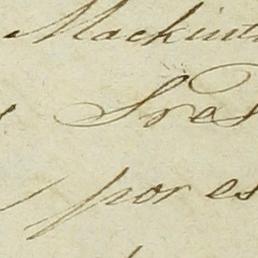 Mackint
Sres
por es